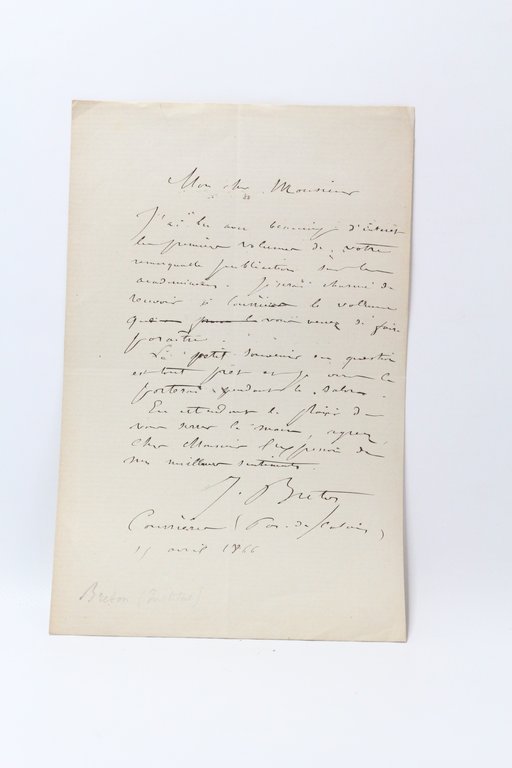 Mon cher Monsieur
J'ai lu avec beaucoup d'intérêt
les premiers volumes de votre
remarquable publication sur les
académiciens. Je serai charmé de
recevoir à Courrières le volume
que vous venez de faire
paraître.
Le petit souvenir en question
est tout prêt et je vous le
porterai pendant le salon.
En attendant le plaisir de
vous serrer la main, agréez,
cher Monsieur l'expression de
mes meilleurs sentiments.
J. Breton
Courrières (Pas-de-Calais)
15 avril 1866
Breton